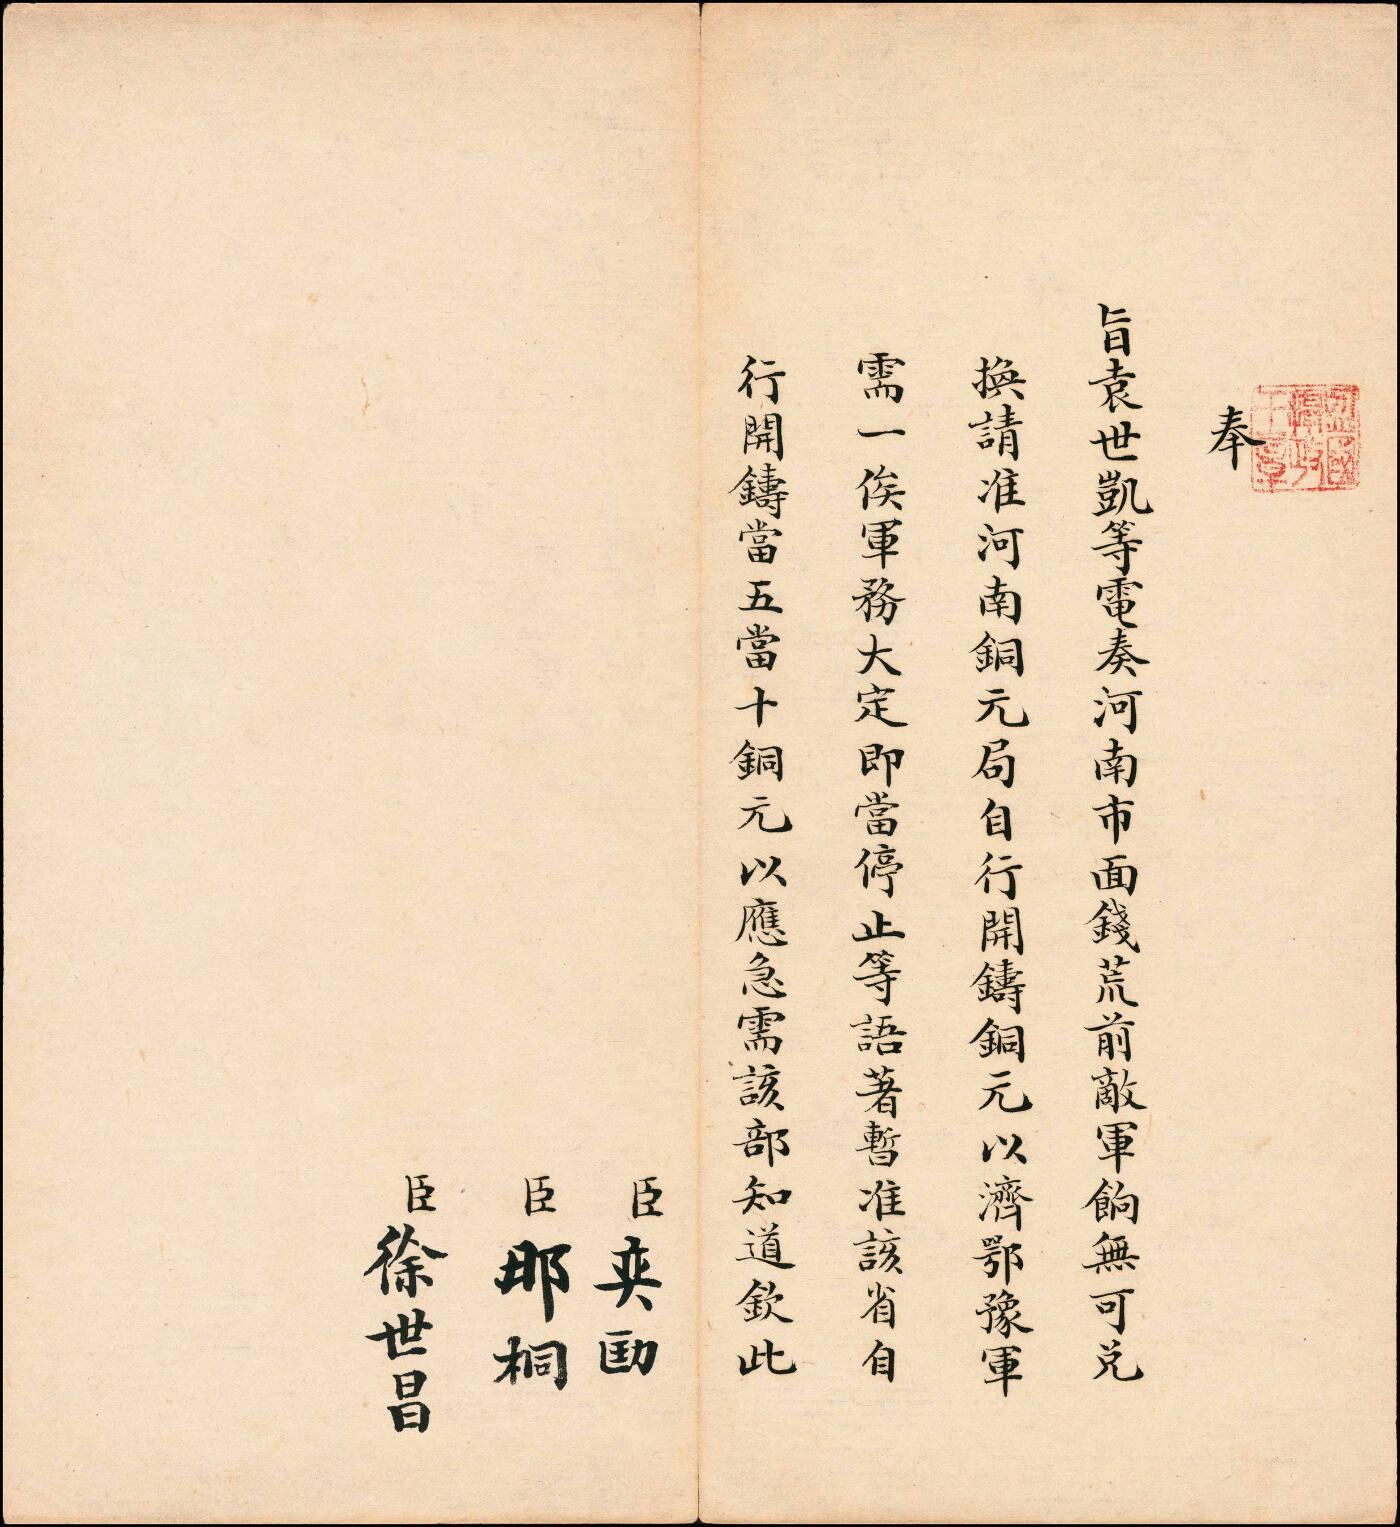 監國攝政王章
奉
旨袁世凱等電奏河南市面錢荒前敵軍餉無可兑
換請准河南銅元局自行開鑄銅元以濟鄂豫軍
需一俟軍務大定即當停止等語著暫准該省自
行開鑄當五當十銅元以應急需該部知道欽此
臣奕劻
臣那桐
臣徐世昌